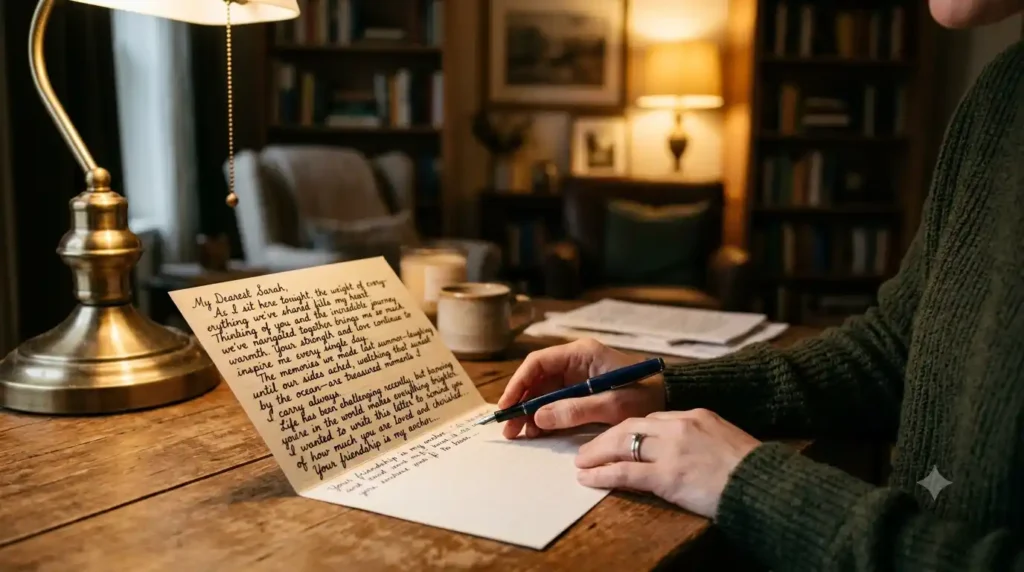 My Dearest Sarah,
As I sit here tonight, the weight of every-
erything we've shared fills my heart.
Thinking of you and the incredible journey
we've navigated together brings me so much
warmth. Your strength and love continue to
inspire me every single day.
The memories we made last summer—laughing
until our sides ached, watching that sunset
by the ocean—are treasured moments I
carry always.
Life has been challenging recently, but knowing
you're in the world makes everything brighter.
I wanted to write this letter to remind you
of how much you are loved and cherished.
Your friendship is my anchor.
Your friendship is my anchor
and